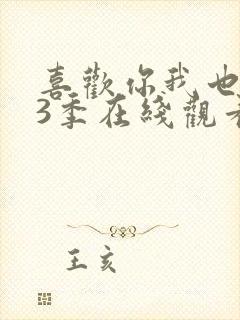 喜歡你我也
3季在綫觀看
王亥